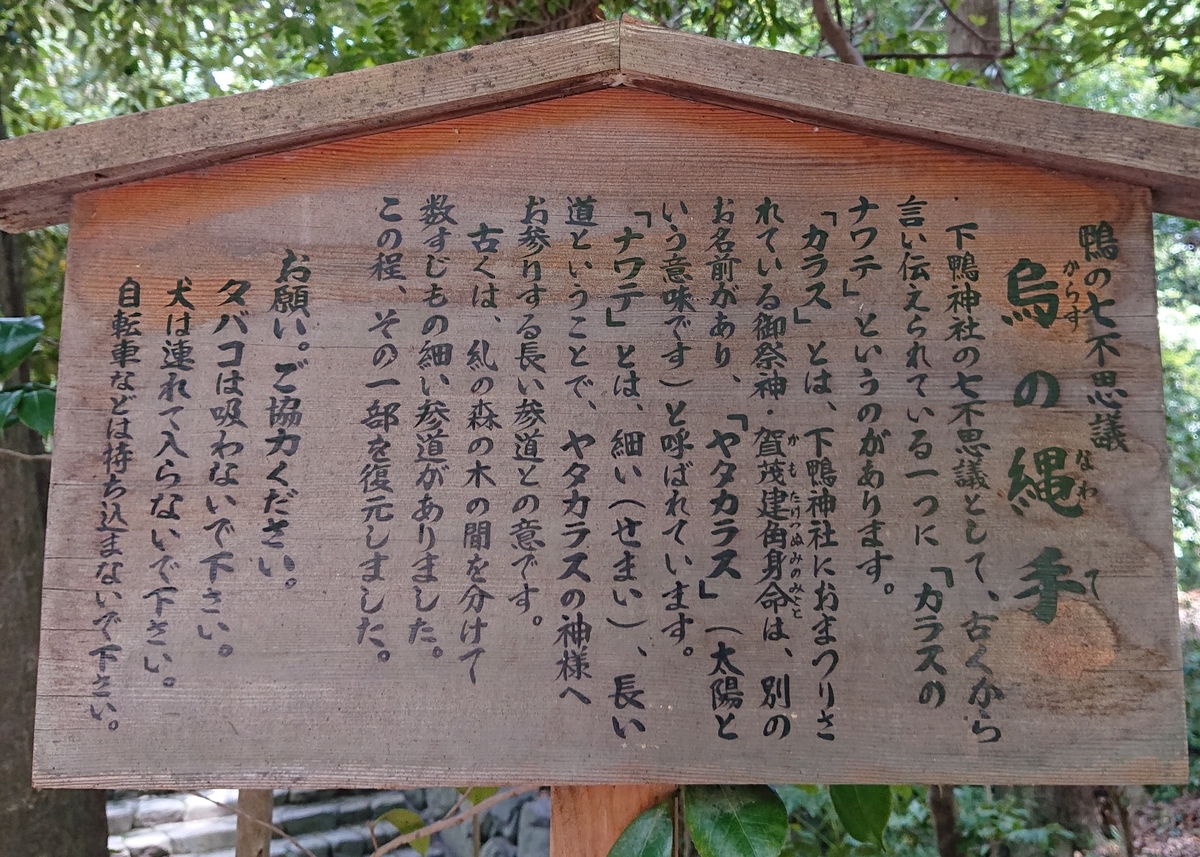 鴨の七不思議
烏の縄手
からす
なわ
て
下鴨神社の七不思議として、古くから
言い伝えられている一つに「カラスの
ナワテ」というのがあります。
「カラス」とは、下鴨神社におまつりさ
れている御祭神・賀茂建角身命は、別の
か も たけつぬみのみこと
お名前があり、「ヤタカラス」(太陽と
いう意味です)と呼ばれています。
「ナワテ」とは、細い(せまい)、長い
道ということで、ヤタカラスの神様へ
お参りする長い参道との意です。
古くは、糺の森の木の間を分けて
数すじもの細い参道がありました。
この程、その一部を復元しました。
お願い。ご協力ください。
タバコは吸わないで下さい。
犬は連れて入らないで下さい。
自転車などは持ち込まないで下さい。